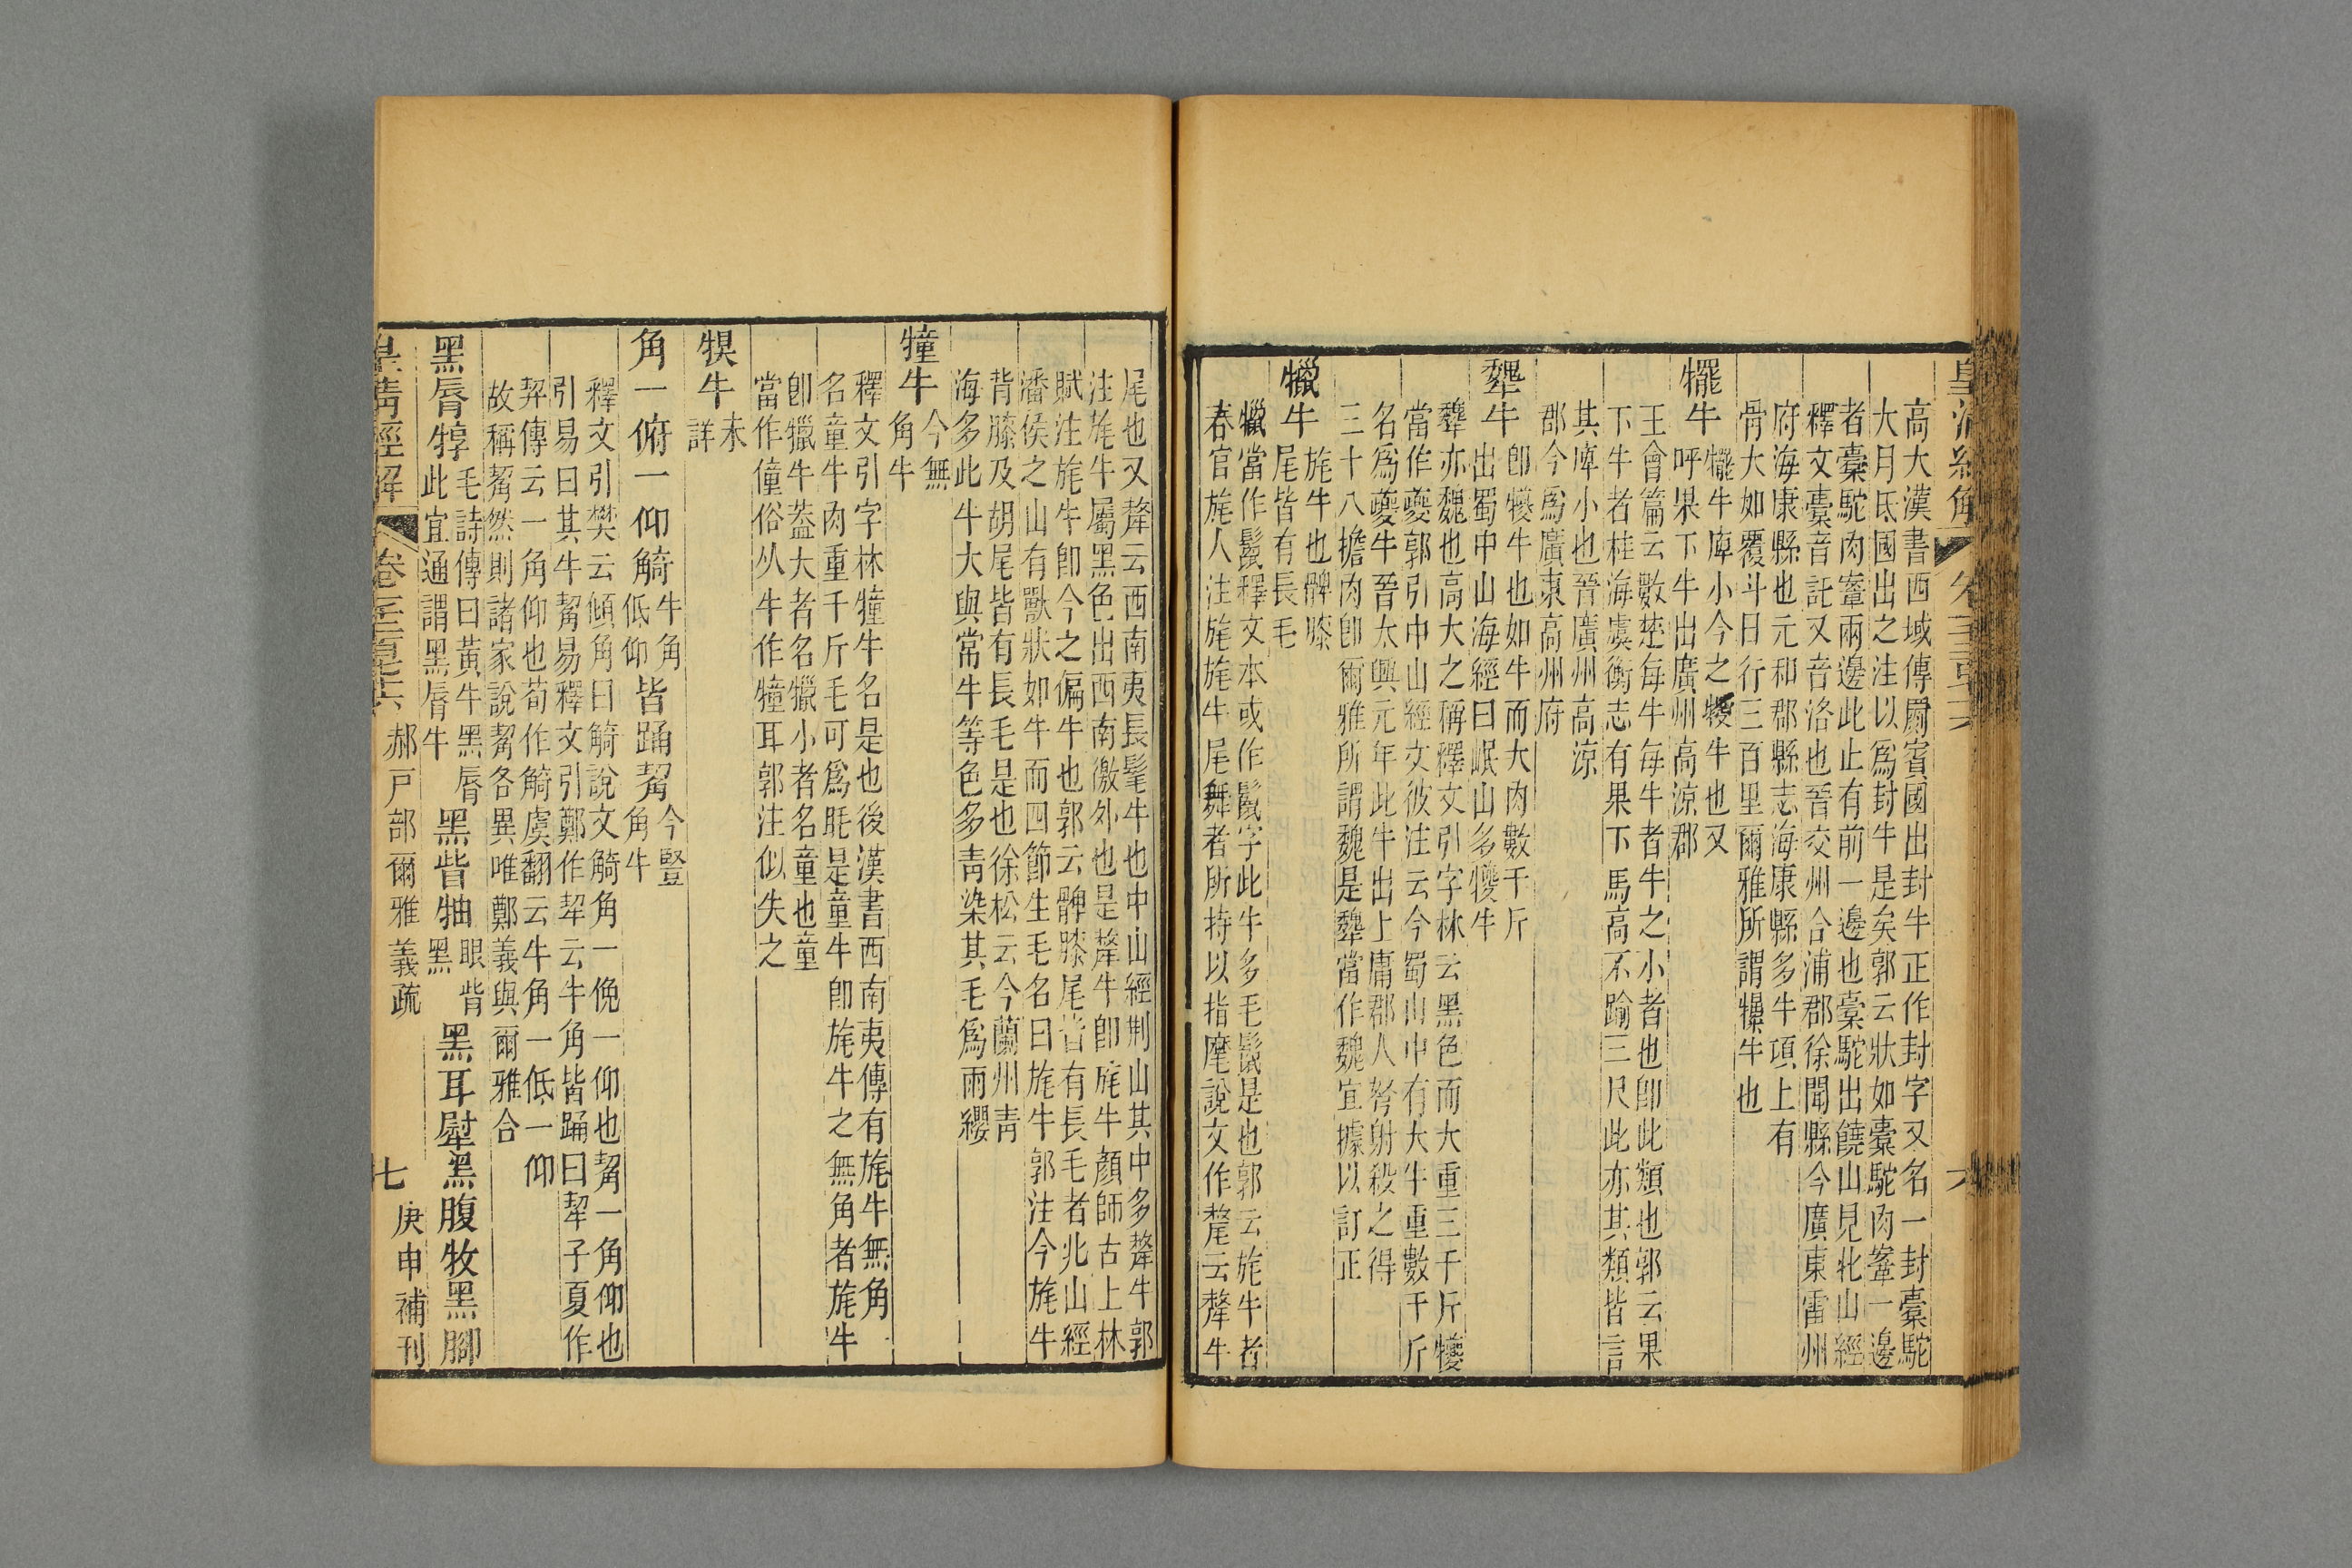 高大漢書西域傳罽賓國出封牛正作封字又名一封橐駝
大月氐國出之注以爲封牛是矣郭云狀如橐駝肉䩺一邊
者橐駝肉䩺兩邊此止有前一邊也橐駝出饒山見北山經
釋文橐音託又音洛也晉交州合浦郡徐聞縣今廣東雷州
府海康縣也元和郡縣志海康縣多牛項上有
骨大如覆斗日行三百里爾雅所謂犦牛也
犤牛
犤牛庳小今之㹇牛也又
呼果下牛出廣州高涼郡
王會篇云數楚每牛每牛者牛之小者也卽此類也郭云果
下牛者桂海虞衡志有果下馬高不踰三尺此亦其類皆言
其庳小也晉廣州高涼
郡今爲廣東高州府
犩牛
卽犪牛也如牛而大肉數千斤
出蜀中山海經曰岷山多犪牛
犩亦魏也高大之稱釋文引字林云黑色而大重三千斤犪
當作夔郭引中山經文彼注云今蜀山中有大牛重數千斤
名爲夔牛晉太興元年此牛出上庸郡人弩射殺之得
三十八擔肉卽爾雅所謂魏是犩當作魏宜據以訂正
犣牛
旄牛也髀膝
尾皆有長毛
犣當作鬣釋文本或作鬣字此牛多毛鬣是也郭云旄牛者
春官旄人注旄旄牛尾舞者所持以指麾說文作氂云犛牛
尾也又犛云西南夷長髦牛也中山經荆山其中多犛牛郭
注旄牛屬黑色出西南徼外也是犛牛卽旄牛顏師古上林
賦注旄牛卽今之偏牛也郭云髀膝尾皆有長毛者北山經
潘侯之山有獸狀如牛而四節生毛名曰旄牛郭注今旄牛
背膝及胡尾皆有長毛是也徐松云今蘭州青
海多此牛大與常牛等色多青染其毛爲雨纓
犝牛
今無
角牛
釋文引字林犝牛名是也後漢書西南夷傳有旄牛無角
名童牛肉重千斤毛可爲毦是童牛卽旄牛之無角者旄牛
卽犣牛葢大者名犣小者名童也童
當作僮俗从牛作犝耳郭注似失之
犑牛
未
詳
角一俯一仰觭
牛角
低仰
皆踊觢
今豎
角牛
釋文引樊云傾角曰觭說文觭角一俛一仰也觢一角仰也
引易曰其牛觢易釋文引鄭作犎云牛角皆踊曰犎子夏作
契傳云一角仰也荀作觭虞翻云牛角一低一仰
故稱觢然則諸家說觢各異唯鄭義與爾雅合
黑脣犉
毛詩傳曰黃牛黑脣
此宜通謂黑脣牛
黑眥牰
眼眥
黑
黑耳犚黑腹牧黑腳
皇清經解
卷
郝戶部爾雅義疏
七
庚申補刊